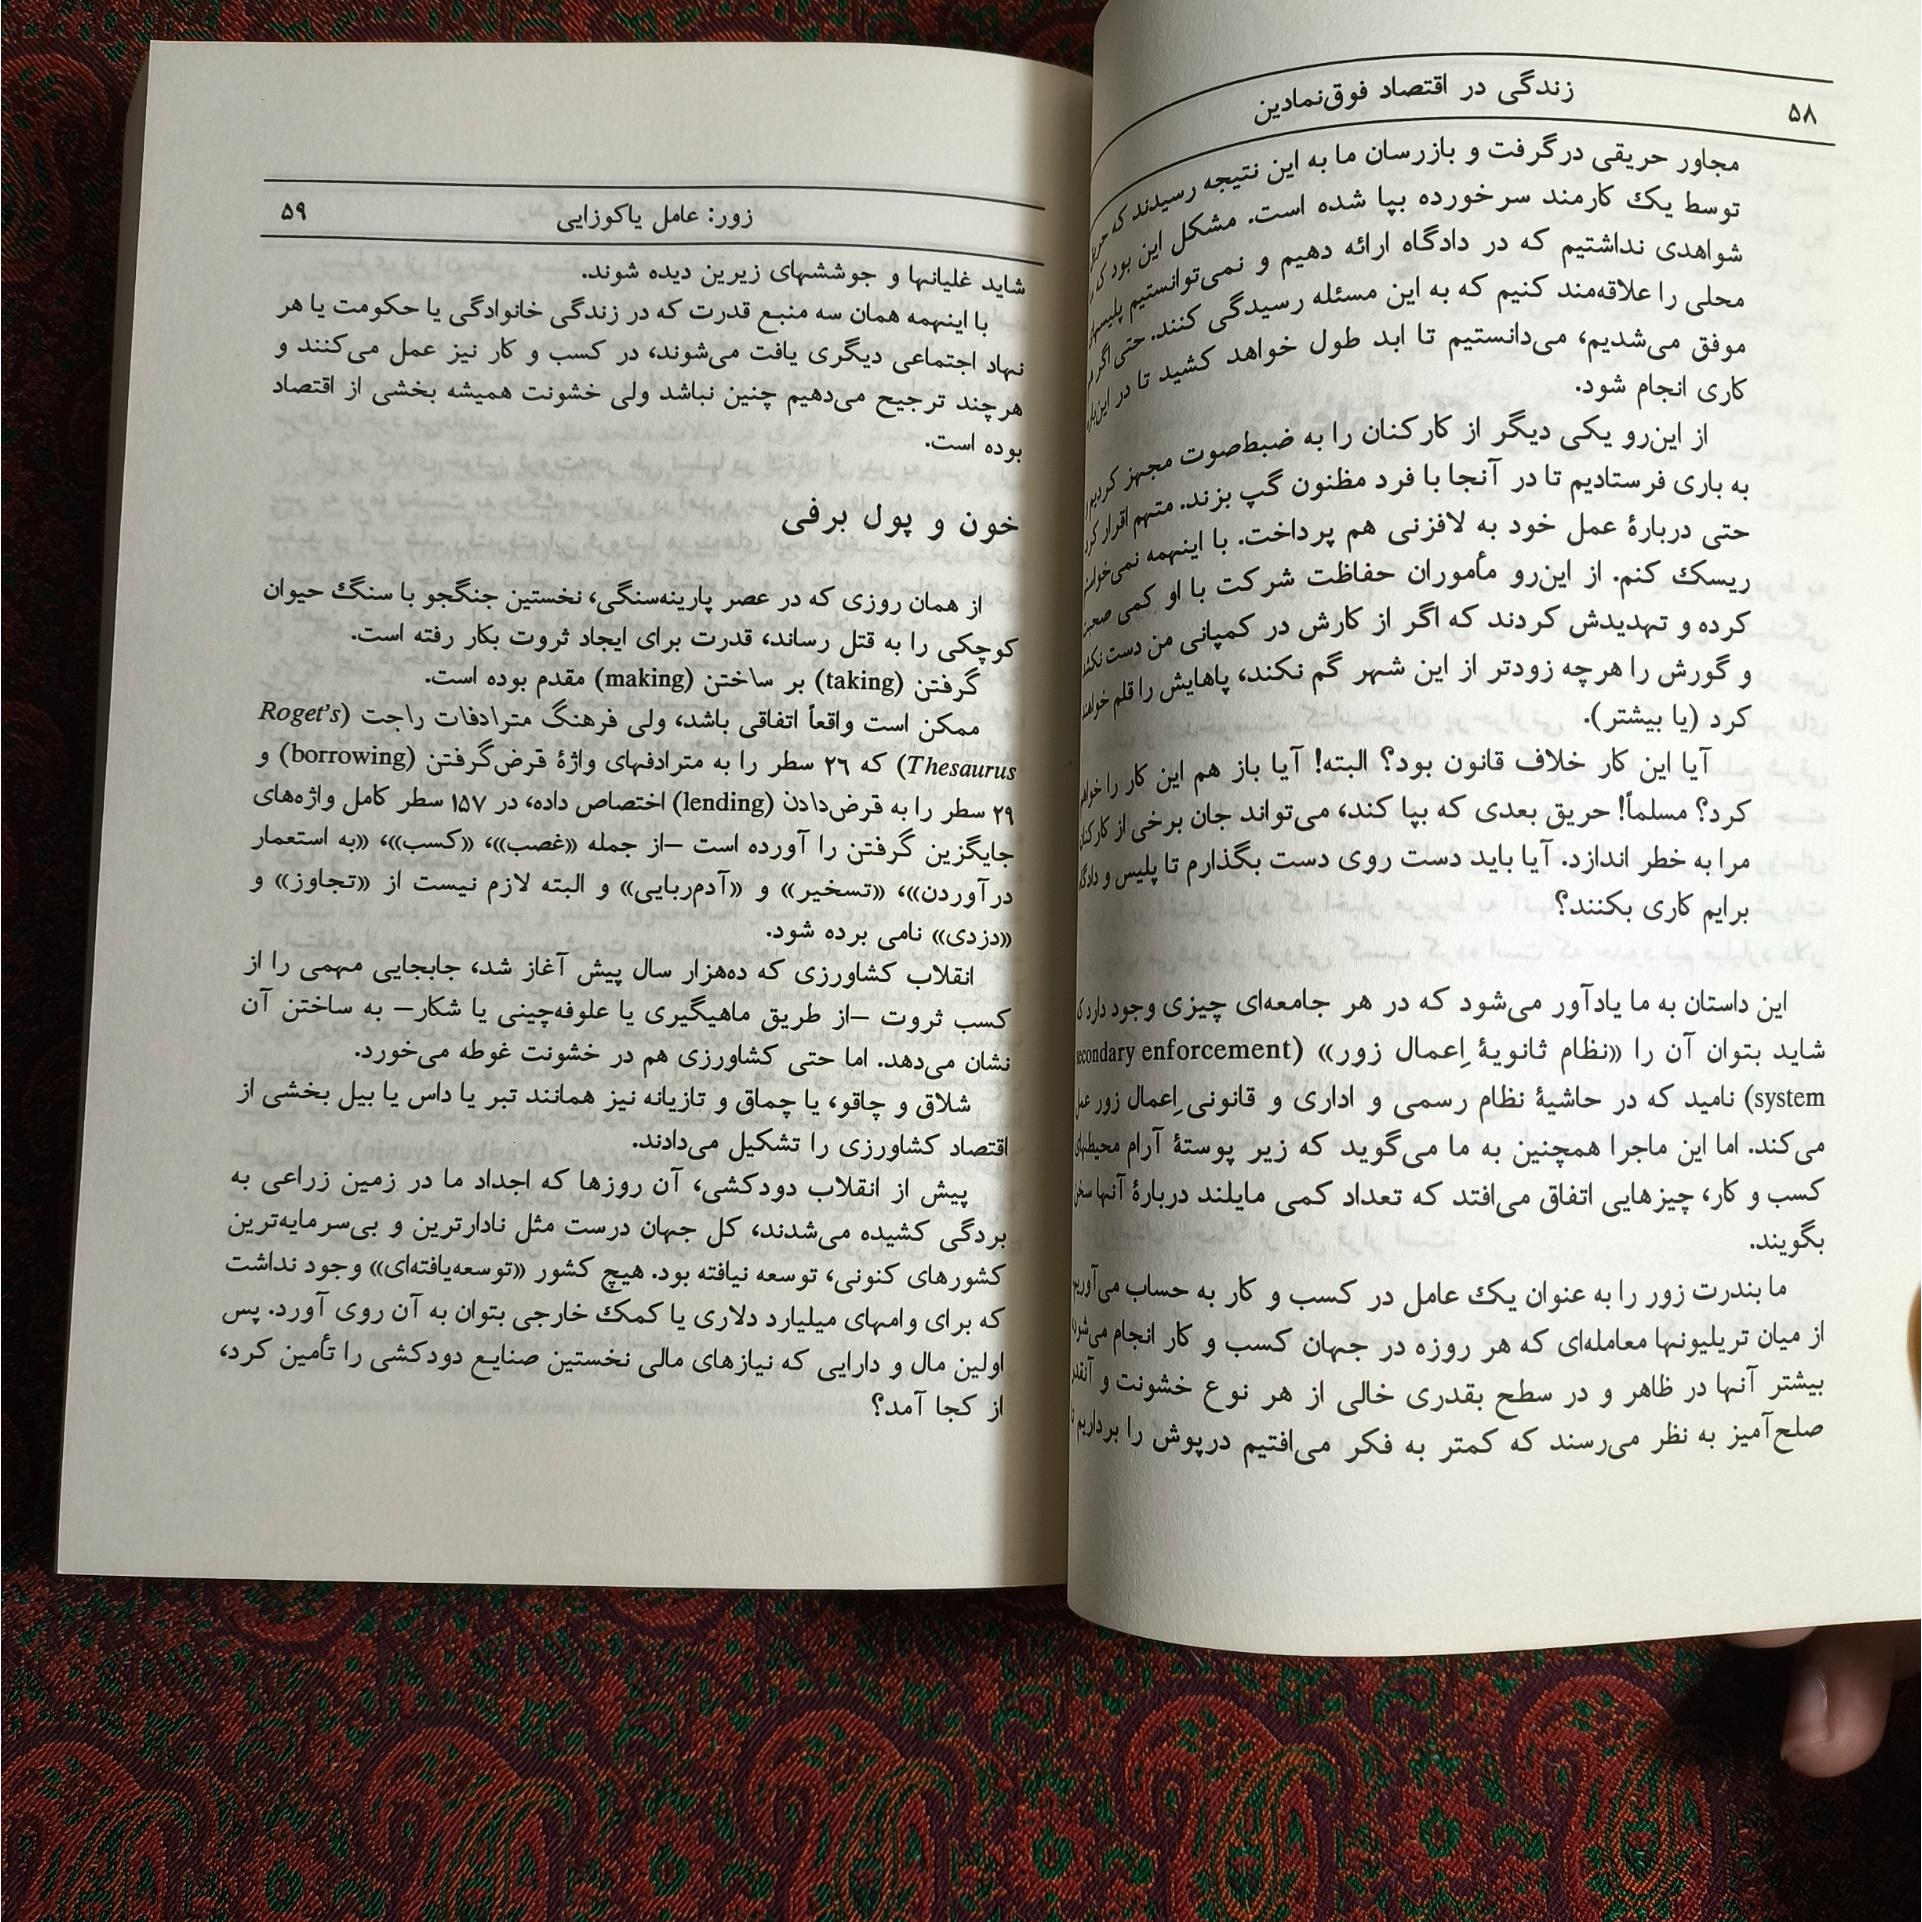 ۵۸
زندگی در اقتصاد فوق‌نمادین
مجاور حریقی درگرفت و بازرسان ما به این نتیجه رسیدند که
توسط یک کارمند سرخورده بپا شده است. مشکل این بود که
شواهدی نداشتیم که در دادگاه ارائه دهیم و نمی‌توانستیم
محلی را علاقه‌مند کنیم که به این مسئله رسیدگی کنند. حتی اگر
موفق می‌شدیم، می‌دانستیم تا ابد طول خواهد کشید تا در
کاری انجام شود.
از این‌رو یکی دیگر از کارکنان را به ضبط‌صوت مجهز کردیم
به باری فرستادیم تا در آنجا با فرد مظنون گپ بزند. متهم اقرار کرد
حتی دربارهٔ عمل خود به لافزنی هم پرداخت. با اینهمه
ریسک کنم. از این‌رو مأموران حفاظت شرکت با او کمی
کرده و تهدیدش کردند که اگر از کارش در کمپانی من دست نکشد
و گورش را هرچه زودتر از این شهر گم نکند، پاهایش را قلم
کرد (یا بیشتر).
آیا این کار خلاف قانون بود؟ البته! آیا باز هم این کار را
کرد؟ مسلماً! حریق بعدی که بپا کند، می‌تواند جان برخی از
مرا به خطر اندازد. آیا باید دست روی دست بگذارم تا پلیس و
برایم کاری بکنند؟
این داستان به ما یادآور می‌شود که در هر جامعه‌ای چیزی وجود دارد
شاید بتوان آن را «نظام ثانویهٔ اِعمال زور» (secondary enforcement
system) نامید که در حاشیهٔ نظام رسمی و اداری و قانونی اِعمال زور
می‌کند. اما این ماجرا همچنین به ما می‌گوید که زیر پوستهٔ آرام محیطهای
کسب و کار، چیزهایی اتفاق می‌افتد که تعداد کمی مایلند دربارهٔ آنها سخن
بگویند.
ما بندرت زور را به عنوان یک عامل در کسب و کار به حساب می‌آوریم
از میان تریلیونها معامله‌ای که هر روزه در جهان کسب و کار انجام می‌شود
بیشتر آنها در ظاهر و در سطح بقدری خالی از هر نوع خشونت و آنقدر
صلح‌آمیز به نظر می‌رسند که کمتر به فکر می‌افتیم درپوش را برداریم
زور: عامل یاکوزایی
۵۹
شاید غلیانها و جوششهای زیرین دیده شوند.
با اینهمه همان سه منبع قدرت که در زندگی خانوادگی یا حکومت یا هر
نهاد اجتماعی دیگری یافت می‌شوند، در کسب و کار نیز عمل می‌کنند و
هرچند ترجیح می‌دهیم چنین نباشد ولی خشونت همیشه بخشی از اقتصاد
بوده است.
خون و پول برفی
از همان روزی که در عصر پارینه‌سنگی، نخستین جنگجو با سنگ حیوان
کوچکی را به قتل رساند، قدرت برای ایجاد ثروت بکار رفته است.
گرفتن (taking) بر ساختن (making) مقدم بوده است.
ممکن است واقعاً اتفاقی باشد، ولی فرهنگ مترادفات راجت (Roget's
Thesaurus) که ۲٦ سطر را به مترادفهای واژهٔ قرض‌گرفتن (borrowing) و
۲۹ سطر را به قرض‌دادن (lending) اختصاص داده، در ۱۵۷ سطر کامل واژه‌های
جایگزین گرفتن را آورده است –از جمله «غصب»، «کسب»، «به استعمار
درآوردن»، «تسخیر» و «آدم‌ربایی» و البته لازم نیست از «تجاوز» و
«دزدی» نامی برده شود.
انقلاب کشاورزی که ده‌هزار سال پیش آغاز شد، جابجایی مهمی را از
کسب ثروت –از طریق ماهیگیری یا علوفه‌چینی یا شکار– به ساختن آن
نشان می‌دهد. اما حتی کشاورزی هم در خشونت غوطه می‌خورد.
شلاق و چاقو، یا چماق و تازیانه نیز همانند تبر یا داس یا بیل بخشی از
اقتصاد کشاورزی را تشکیل می‌دادند.
پیش از انقلاب دودکشی، آن روزها که اجداد ما در زمین زراعی به
بردگی کشیده می‌شدند، کل جهان درست مثل نادارترین و بی‌سرمایه‌ترین
کشورهای کنونی، توسعه نیافته بود. هیچ کشور «توسعه‌یافته‌ای» وجود نداشت
که برای وامهای میلیارد دلاری یا کمک خارجی بتوان به آن روی آورد. پس
اولین مال و دارایی که نیازهای مالی نخستین صنایع دودکشی را تأمین کرد،
از کجا آمد؟